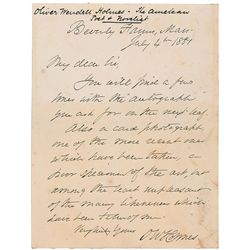 Oliver Wendell Holmes - the American
Poet & Novelist
Beverly Farms, Mass.
July 4th 1881
My dear Sir,
You will find a few
lines with the autograph
you ask for on the next leaf.
Also a card photograph
one of the more recent ones
which have been taken, a
poor specimen of the art, but
among the least unpleasant
of the many likenesses which
have been taken of me.
Very truly Yours
O W Holmes